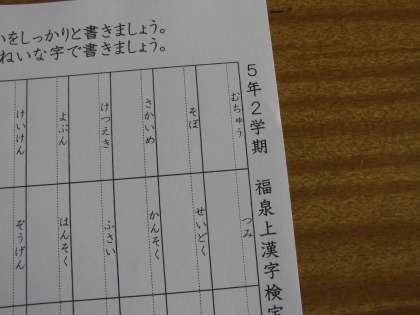 いをしっかりと書きましょう。
ねいな字で書きましょう。
5年2学期 福泉上漢字検定
むちゅう
そぼ
さかいめ
けつえき
よぶん
けいけん
つみ
せいどく
かんそく
ふさい
はんそく
ぞうげん